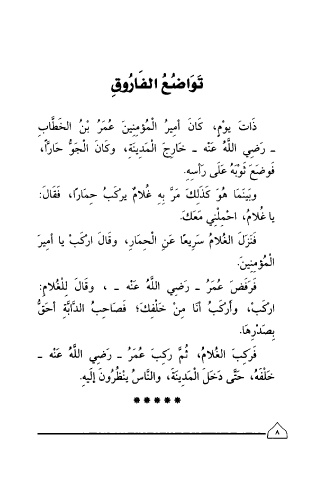 تَوَاضُعُ الفَارُوقِ
ذَاتَ يَوْمٍ، كَانَ أَمِيرُ الْمُؤْمِنِينَ عُمَرُ بْنُ الخَطَّابِ
ـ رَضِيَ اللَّهُ عَنْه ـ خَارِجَ الْمَدِينَةِ، وكَانَ الْجَوُّ حَارًّا،
فَوَضَعَ ثَوْبَهُ عَلَى رَأْسِهِ.
وبَيْنَمَا هُوَ كَذَلِكَ مَرَّ بِهِ غُلَامٌ يرْكَبُ حِمَارًا، فَقَالَ:
يا غُلَامُ، احْمِلْنِي مَعَكَ.
فَنَزَلَ الغُلَامُ سَرِيعًا عَنِ الْحِمَارِ، وقَالَ ارْكَبْ يا أَمِيرَ
الْمُؤْمِنِينَ.
فَرَفَضَ عُمَرُ ـ رَضِيَ اللَّهُ عَنْه ـ ، وقَالَ لِلْغُلَامِ:
ارْكَبْ، وأَرْكَبُ أنَا مِنْ خَلْفِكَ؛ فَصَاحِبُ الدَّابَّةِ أحَقُّ
بِصَدْرِهَا.
فَرَكِبَ الغُلَامُ، ثُمَّ رَكِبَ عُمَرُ ـ رَضِيَ اللَّهُ عَنْه ـ
خَلْفَهُ، حَتَّى دَخَلَ الْمَدِينَةَ، والنَّاسُ يَنْظُرُونَ إلَيهِ.
*****
٨